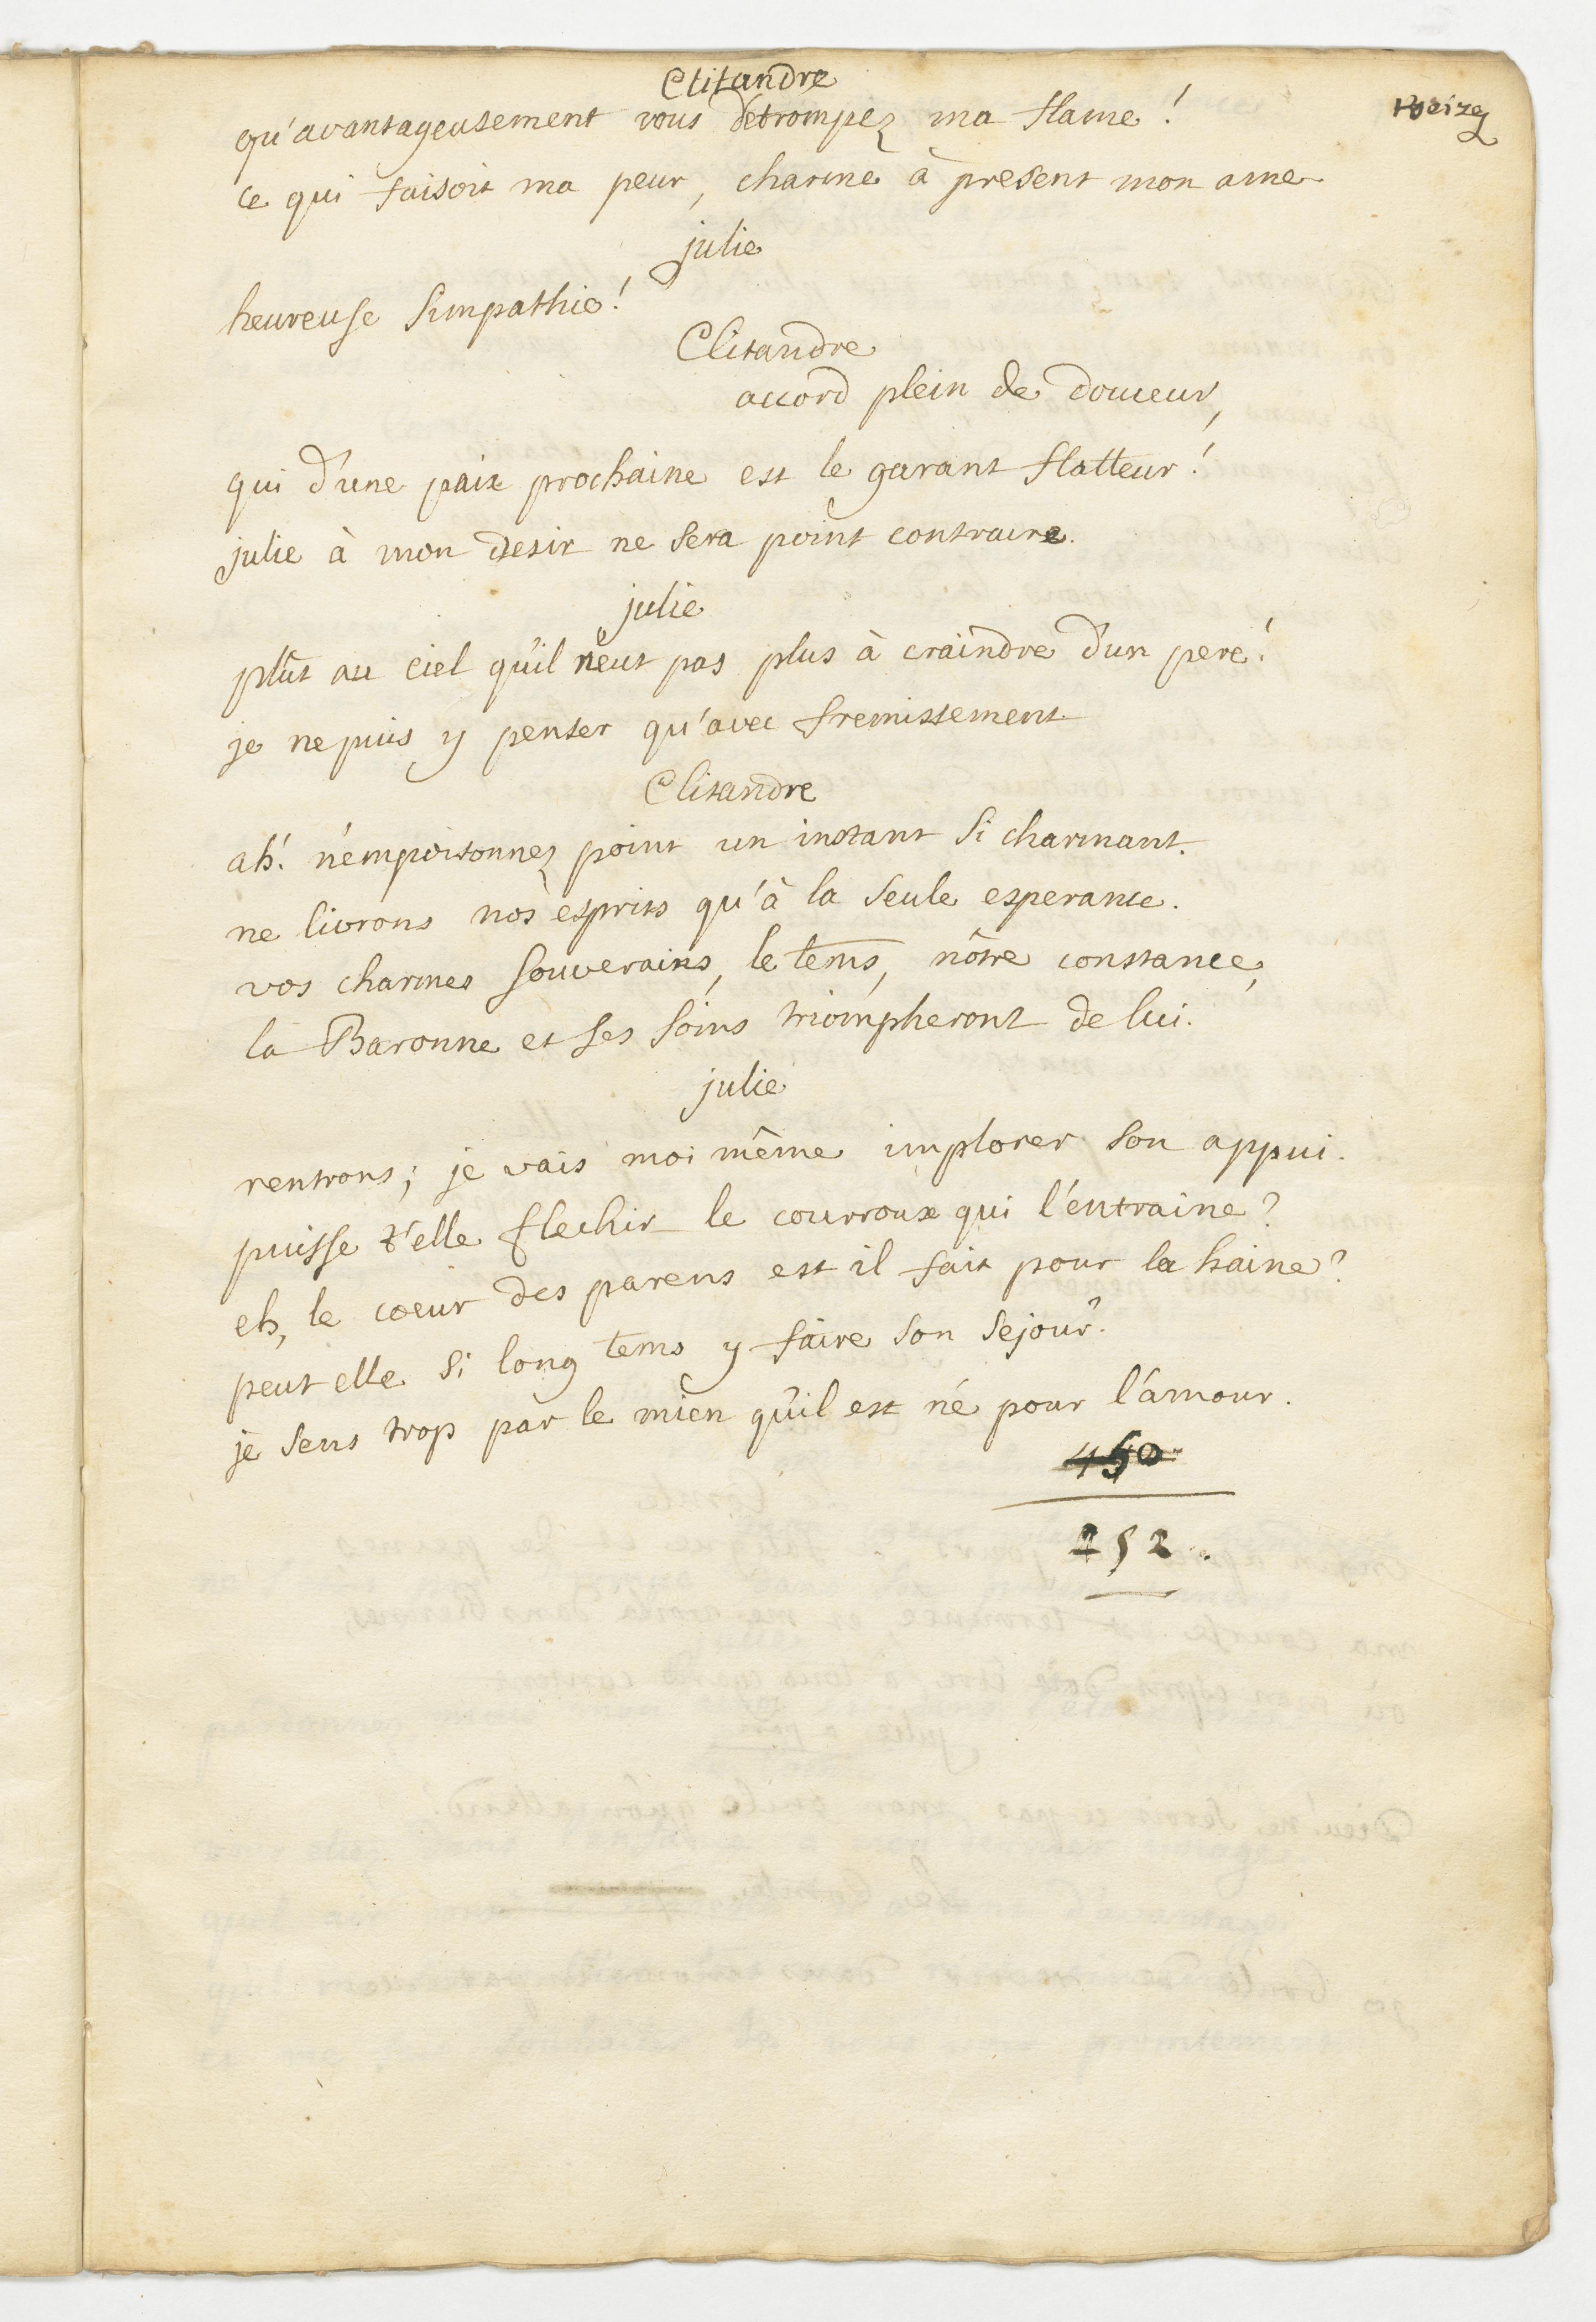 Clitandre
qu'avantageusement vous détrompez ma flame !
ce qui faisoit ma peur, charme à present mon ame
julie
heureuse simpathie !
Clitandre
accord plein de douceur,
qui d'une paix prochaine est le garant flatteur !
julie à mon desir ne sera point contraire.
julie
plût au ciel qu'il n'eut pas plus à craindre d'un pere !
je ne puis y penser qu'avec fremissement
Clitandre
ah ! n'empoisonnez point un instant si charmant.
ne livrons nos esprits qu'à la seule esperance.
vos charmes souverains, le tems, nôtre constance,
la Baronne et ses soins triompheront de lui.
julie
rentrons ; je vais moi même implorer son appui.
puisse t'elle flechir le courroux qui l'entraine ?
eh, le coeur des parens est il fait pour la haine ?
peut elle si long tems y faire son sejour ?
je sens trop par le mien qu'il est né pour l'amour.
450
252